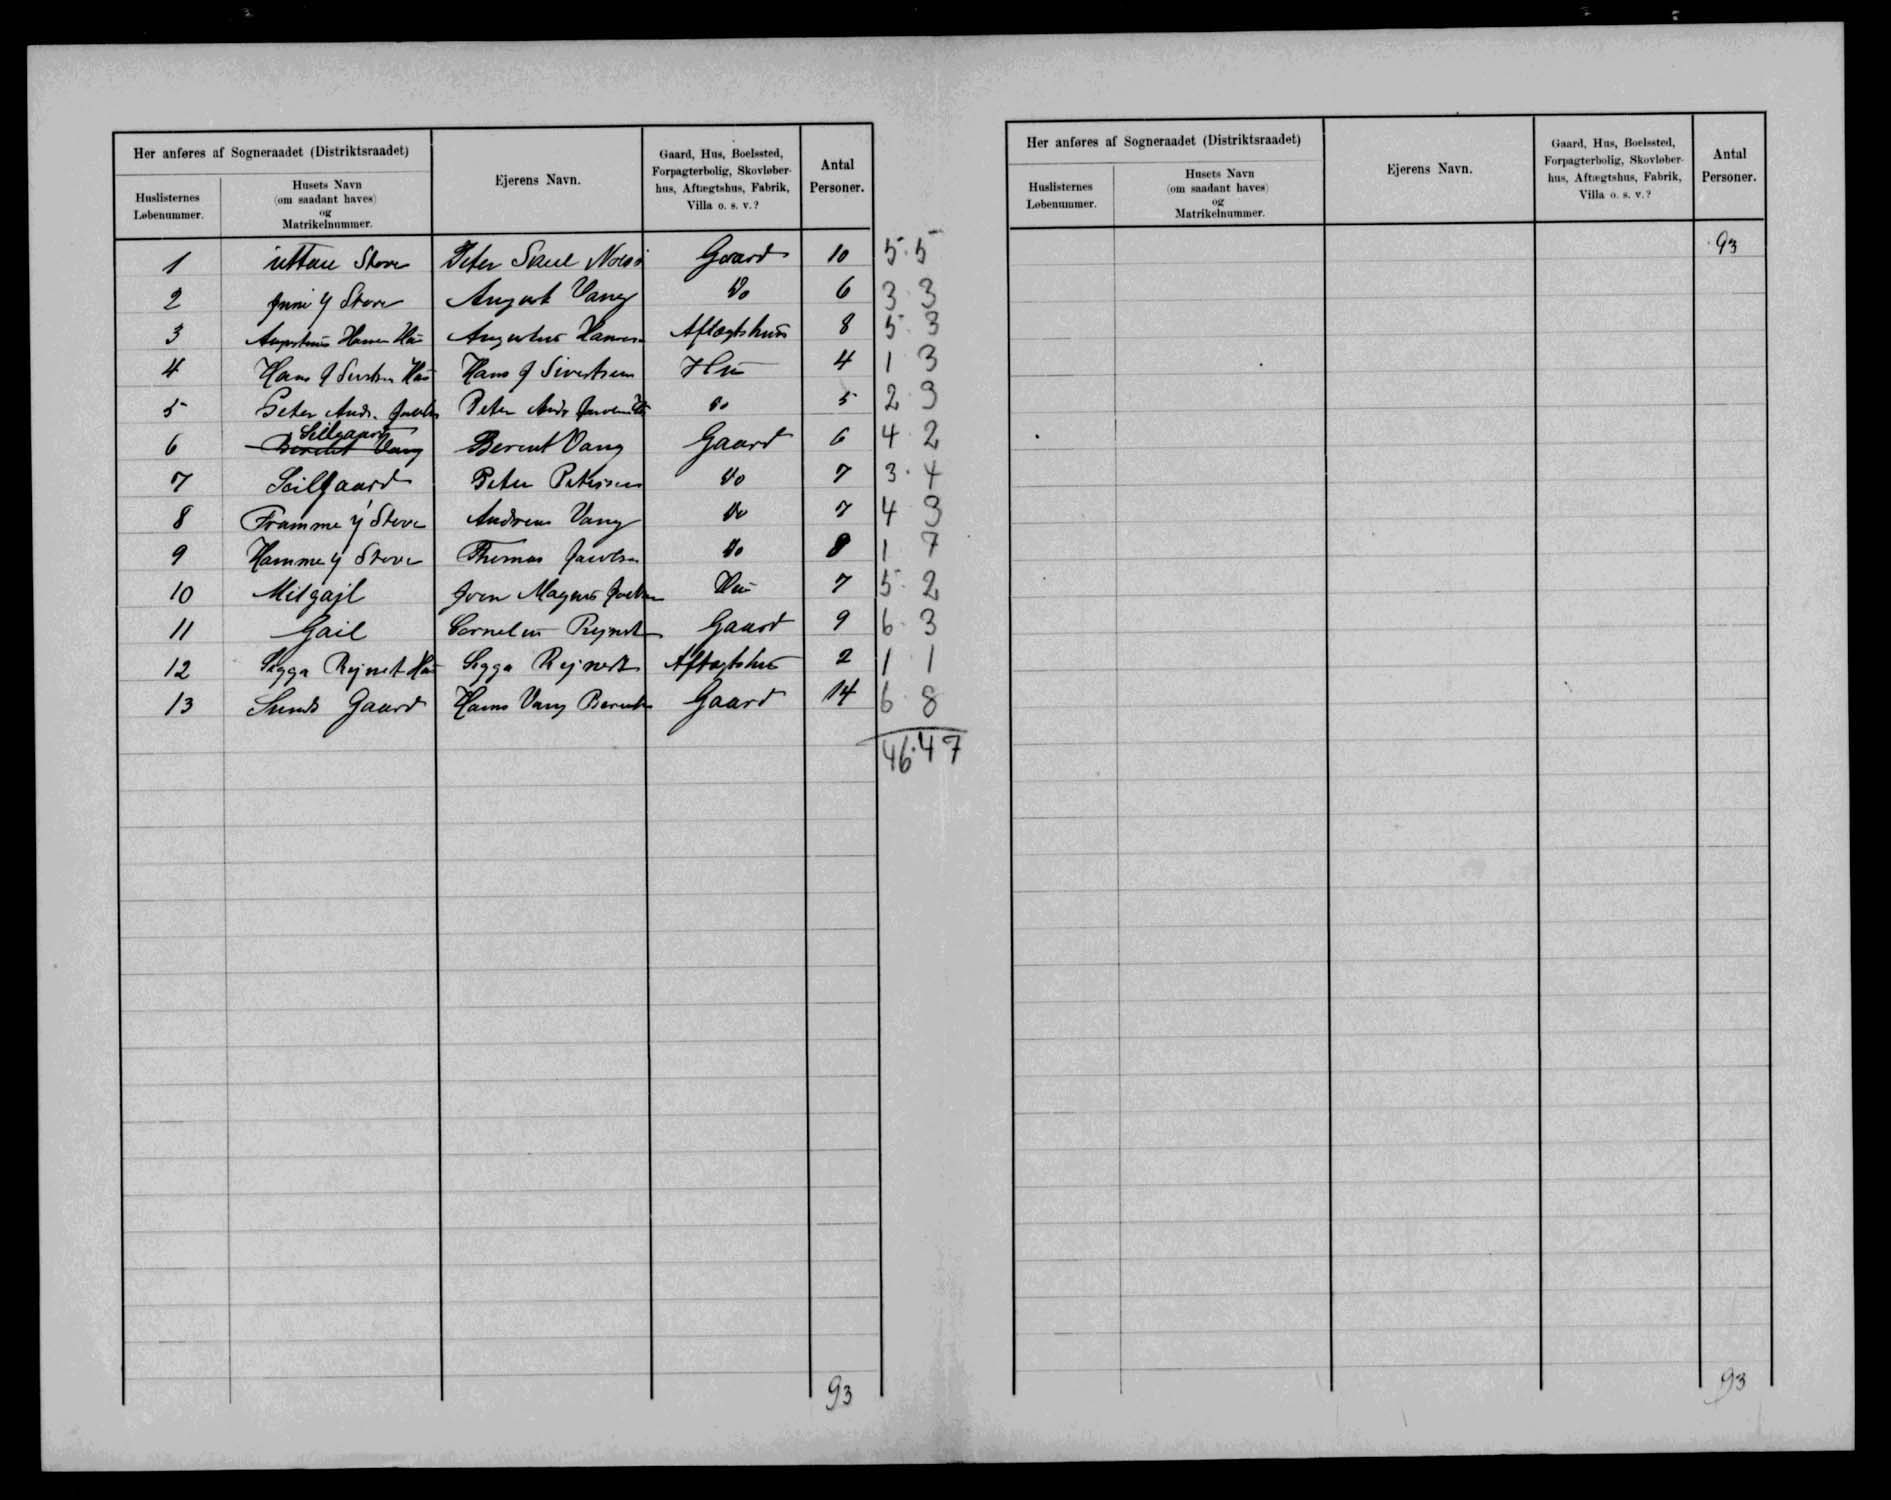 Her anføres af Sogneraadet (Distriktsraadet)
Huslisternes Løbenummer.
Husets Navn (om saadant haves) og Matrikelnummer.
Ejerens Navn.
Gaard, Hus, Boelssted, Forpagterbolig, Skovløberhus, Aftægtshus, Fabrik, Villa o. s. v.?
Antal Personer.
1 uttare Stove Peter Gaard 10 5 5
2 y Stove August Vang Do 6 3 3
3 Augustinus Hansen Hus Augustus Hansen Aftægtshus 8 5 3
4 Hans J Hus Hans J Sivertsen Hus 4 1 3
5 Peter Andr. Peter Andr do 5 2 3
6 Seilgaard Berent Vang Berent Vang Gaard 6 4 2
7 Seilgaard Peter Petersen Do 7 3 4
8 Framme y Stove Andreas Vang Do 7 4 3
9 Hamme y Stove Thomas Jacobsen Do 8 1 7
10 Midgajl Joen Magnus Hus 7 5 2
11 Gail Cornelius Gaard 9 6 3
12 Sigga Rejnert Hus Sigga Rejnert Aftægtshus 2 1 1
13 Sunds Gaard Hans Vang Gaard 14 6 8
46 47
93
Her anføres af Sogneraadet (Distriktsraadet)
Huslisternes Løbenummer.
Husets Navn (om saadant haves) og Matrikelnummer.
Ejerens Navn.
Gaard, Hus, Boelssted, Forpagterbolig, Skovløberhus, Aftægtshus, Fabrik, Villa o. s. v.?
Antal Personer.
93
93